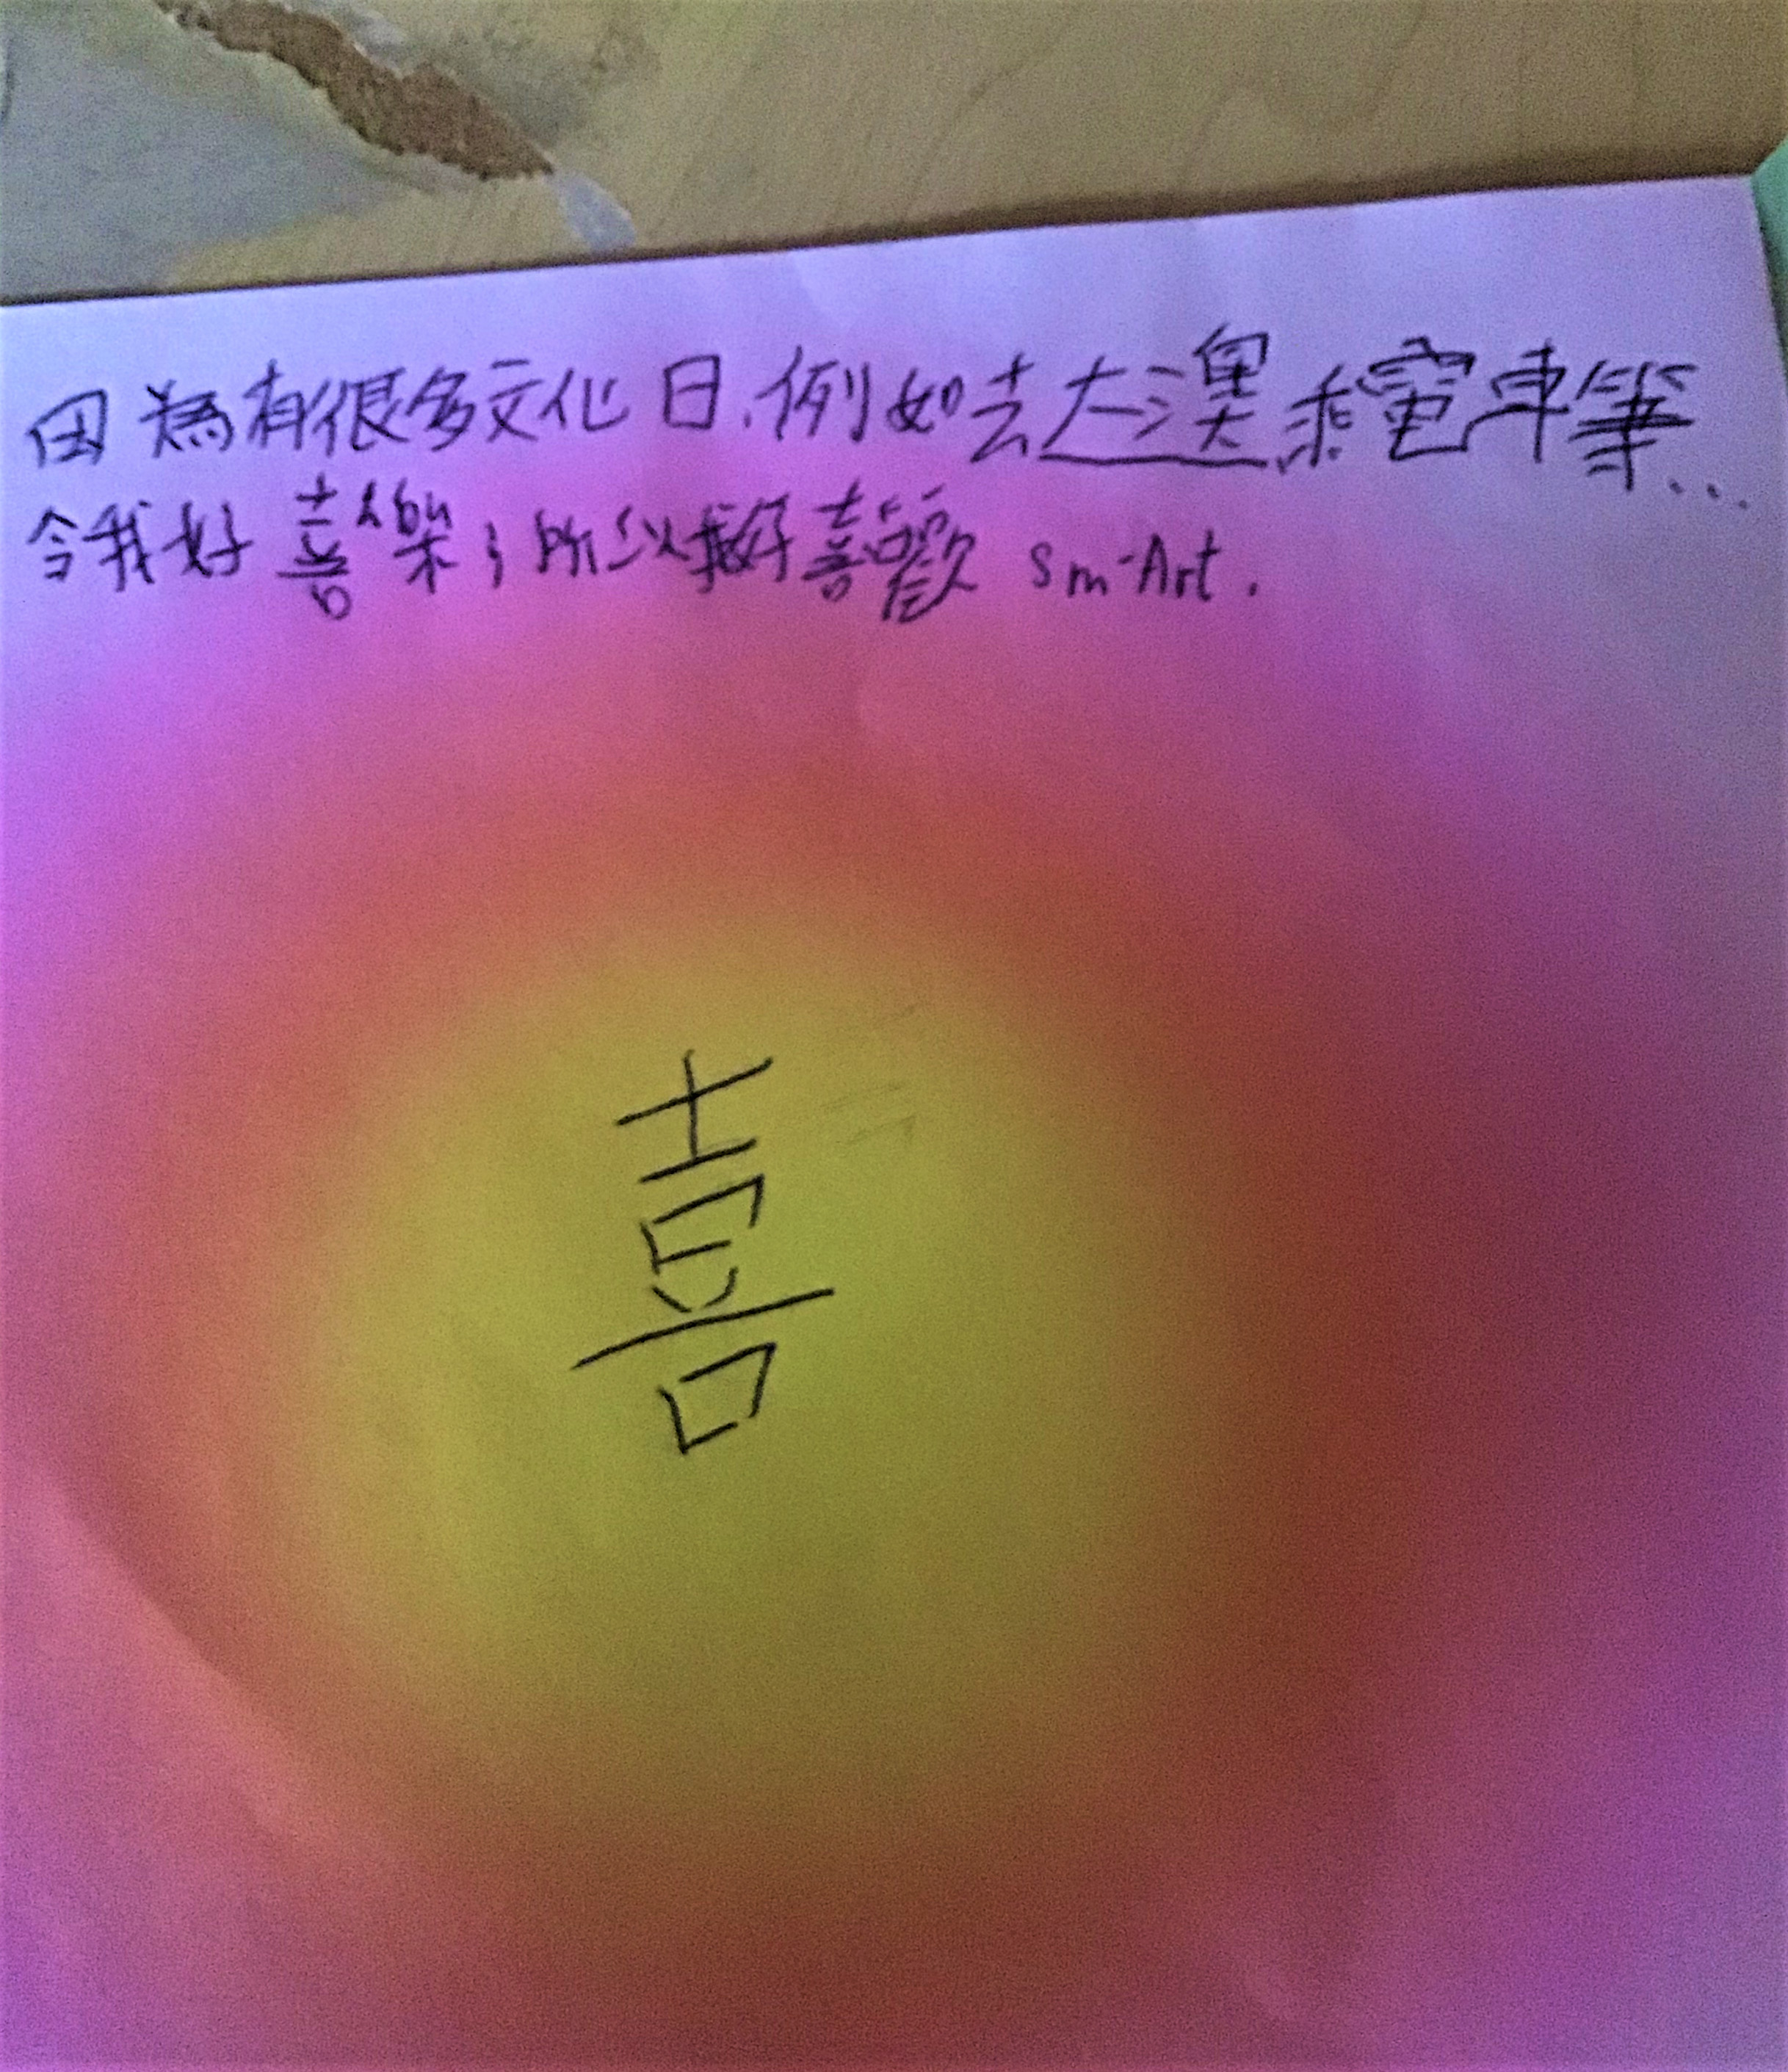 因為有很多文化日.例如去大澳乘電車筆...
令我好喜樂；所以我好喜歡 Sm-Art.
喜